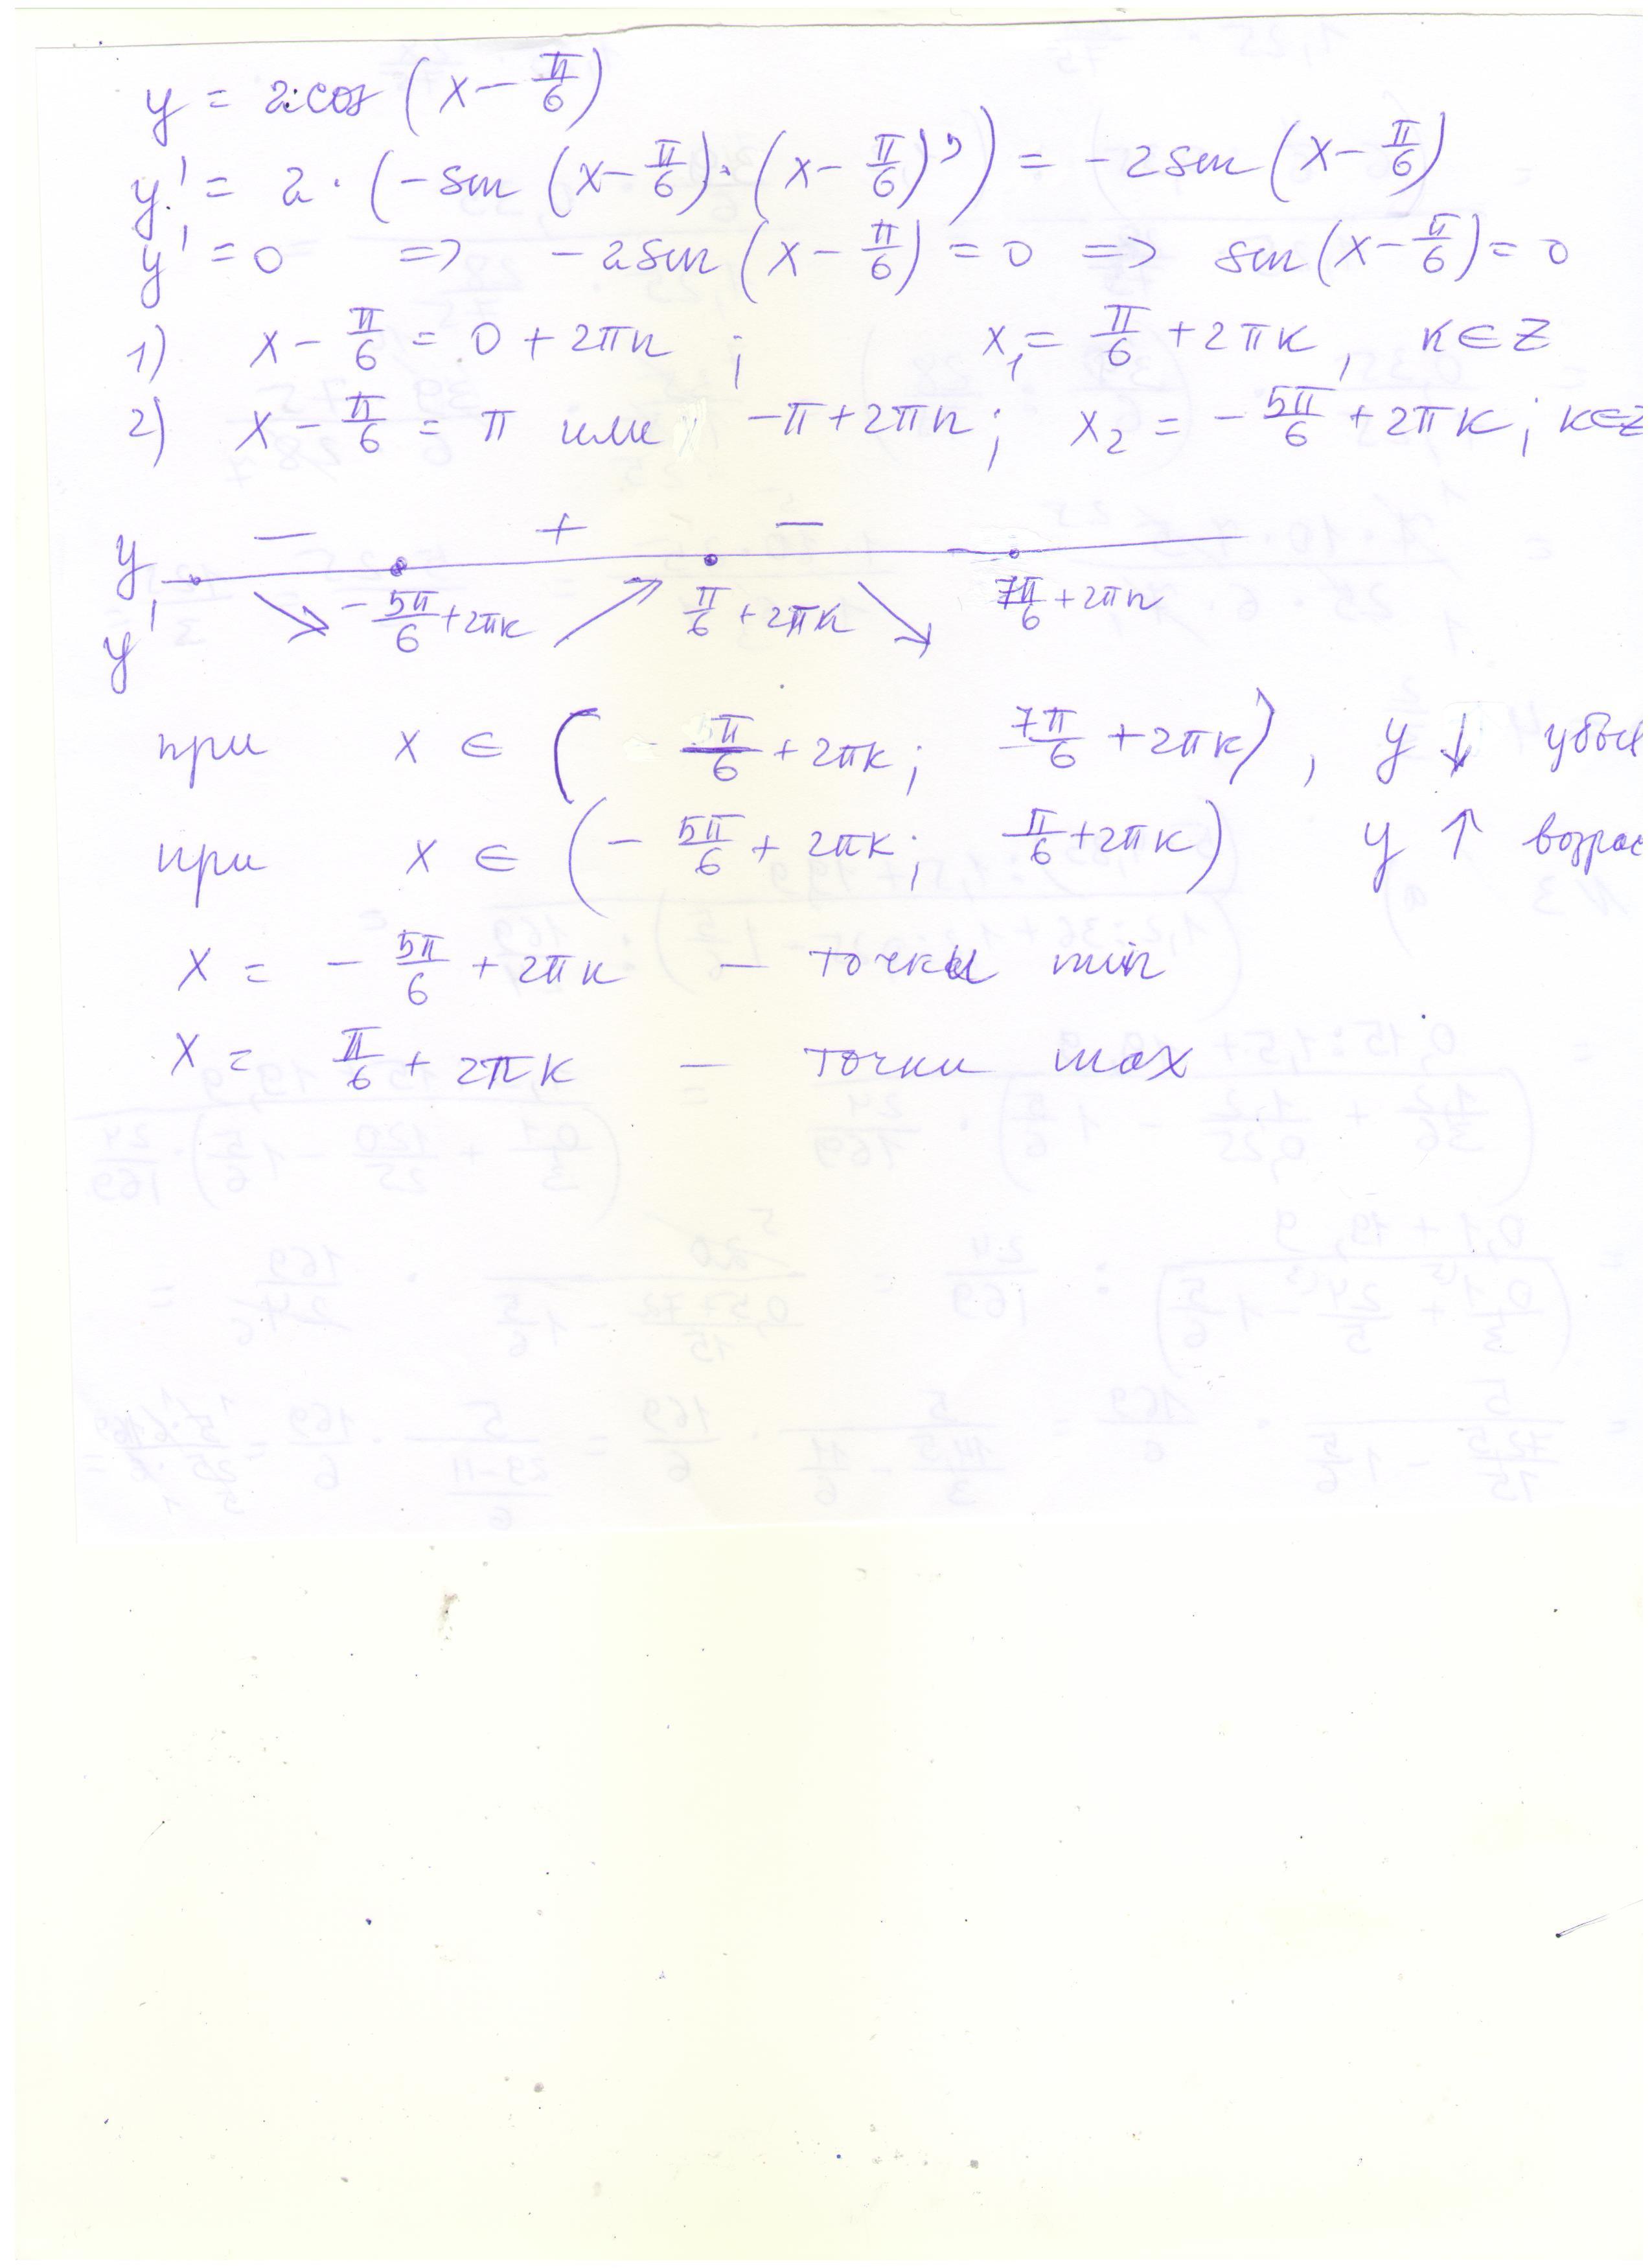 y = 2·cos (x − π/6)
y' = 2 · (−sin (x − π/6) · (x − π/6)') = −2 sin (x − π/6)
y' = 0 => −2 sin (x − π/6) = 0 => sin (x − π/6) = 0
1) x − π/6 = 0 + 2πn ; x₁ = π/6 + 2πk, k ∈ Z
2) x − π/6 = π или −π + 2πn ; x₂ = − 5π/6 + 2πk ; k ∈ Z
y − + −
y' − 5π/6 + 2πk π/6 + 2πk 7π/6 + 2πn
при x ∈ ( π/6 + 2πk ; 7π/6 + 2πk ) , y ↓ убыв
при x ∈ ( − 5π/6 + 2πk ; π/6 + 2πk ) y ↑ возрас
x = − 5π/6 + 2πk — точки min
x = π/6 + 2πk — точки max